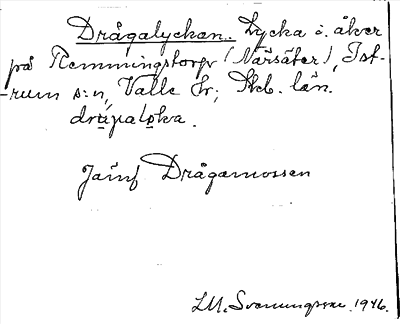 Drågalyckan. Lycka i åker
på Remmingstorps (Närsäter), Ist-
rum s:n, Valle hr; Skb. län.
Jämf Drågamossen
L.M. Svanungsson. 1946.